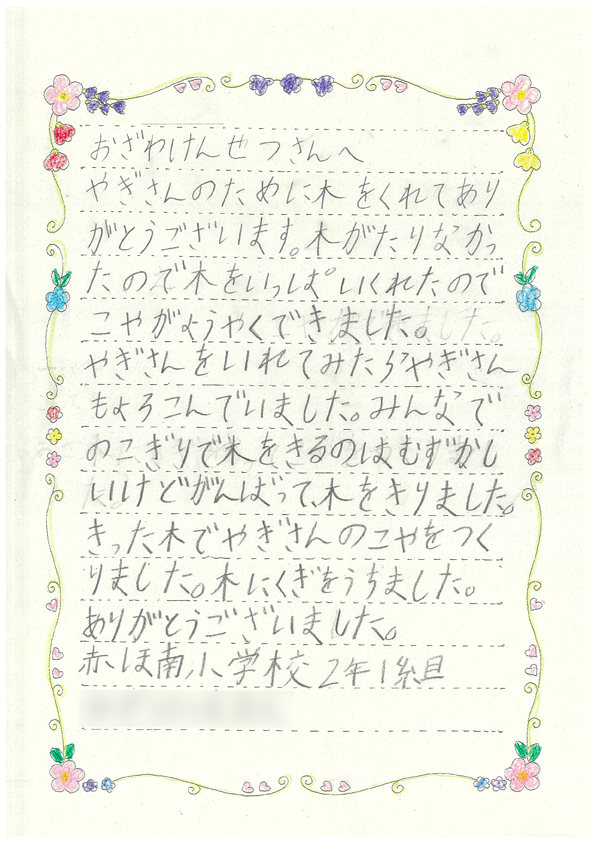 おざわけんせつさんへ
やぎさんのために木をくれてあり
がとうございます。木がたりなかっ
たので木をいっぱいくれたので
こやがようやくできました。
やぎさんをいれてみたらやぎさん
もよろこんでいました。みんなで
のこぎりで木をきるのはむずかし
いけどがんばって木をきりました。
きった木でやぎさんのこやをつく
りました。木にくぎをうちました。
ありがとうございました。
赤ほ南小学校2年1組